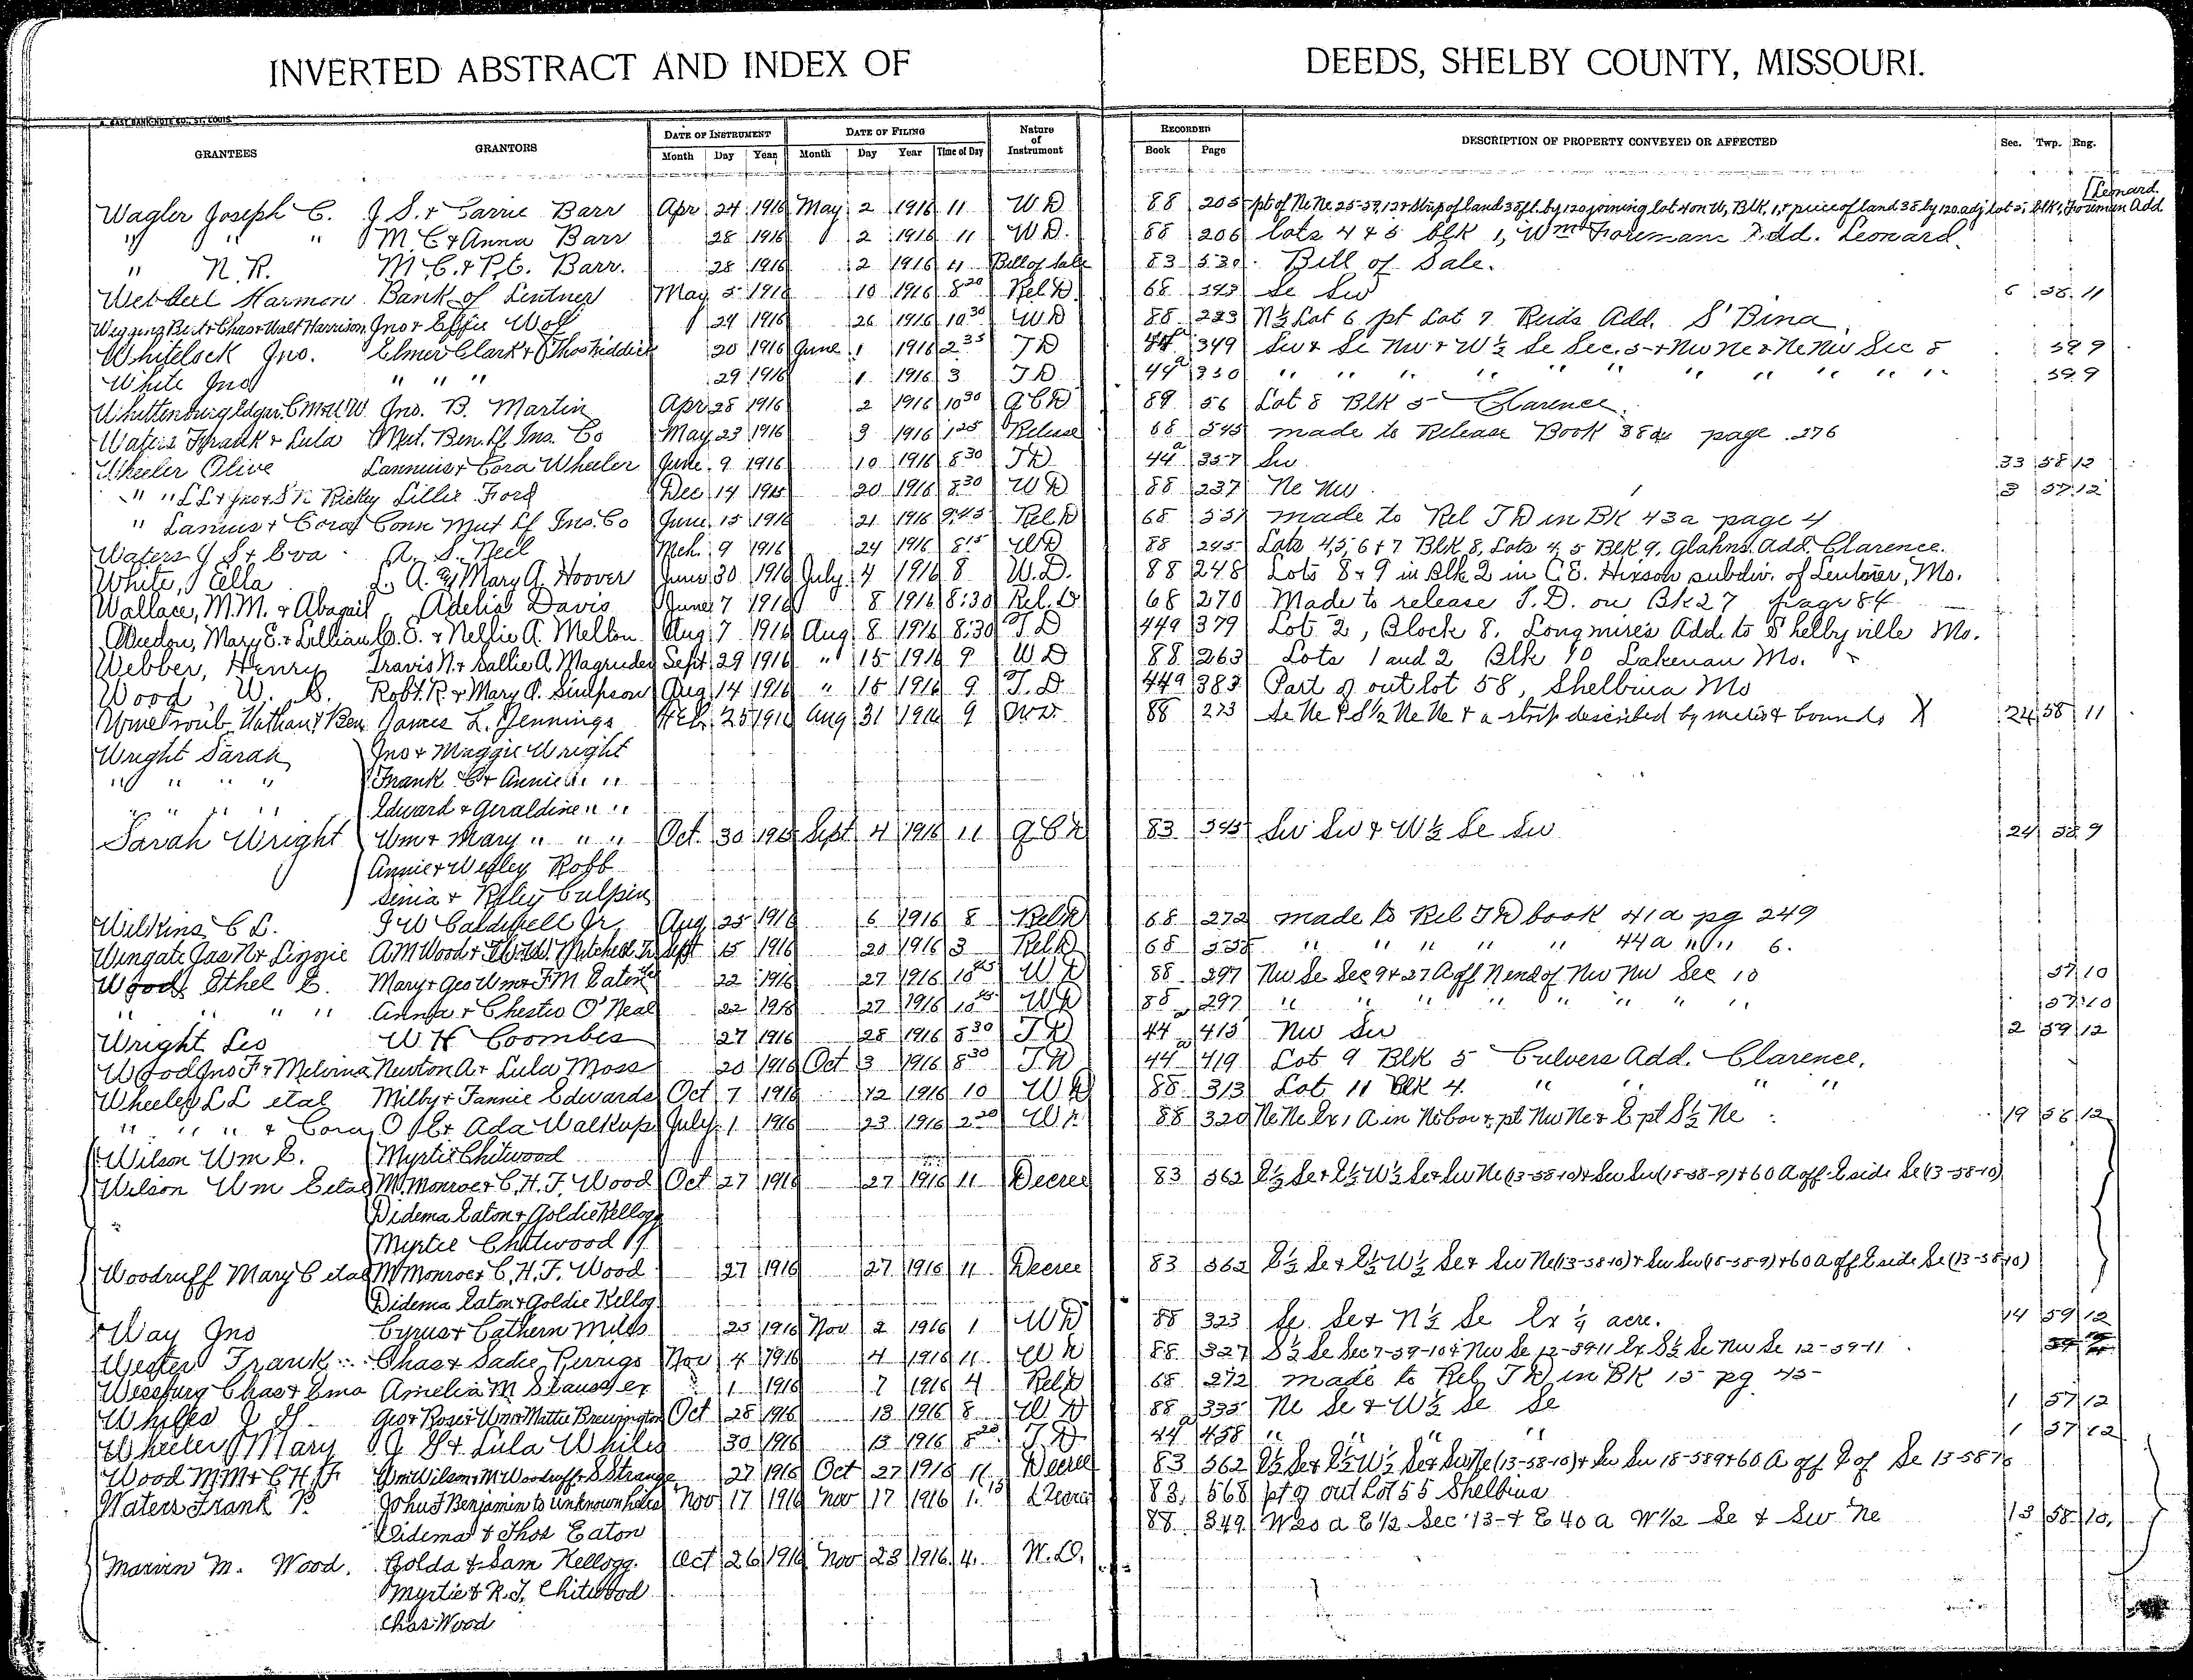 INVERTED ABSTRACT AND INDEX OF DEEDS, SHELBY COUNTY, MISSOURI.
GRANTEES GRANTORS DATE OF INSTRUMENT DATE OF FILING Nature of Instrument RECORDED DESCRIPTION OF PROPERTY CONVEYED OR AFFECTED Sec. Twp. Rng.
Month Day Year Month Day Year Time of Day Book Page
[Leonard.
Wagler Joseph C. J S. + Carrie Barr Apr 24 1916 May 2 1916 11 W D 88 205 pt of Ne Ne 25-59-12 + strip of land 35 ft. by 120 joining lot 4 on W, Blk, 1, + piece of land 35 by 120 adj Lot 5, Blk 1, Foreman Add
" " " M C + Anna Barr 28 1916 2 1916 11 W D. 88 206 Lots 4 + 5 blk 1, Wm Foremans Add. Leonard.
" N. R. M C. + P. C. Barr. 28 1916 2 1916 11 Bill of Sale 83 530 Bill of Sale.
Harmon Bank of Lentner May 5 1916 10 1916 8 20 Rel D. 68 Se Sw 6 58 11
Wiggins Bert + Chas + Walt Harrison Jno + Effie Wolf 24 1916 26 1916 10 30 W D 88 223 N½ Lot 6 pt Lot 7 Reids Add. S'Bina.
Whitelock Jno. Elmer Clark + Thos Kiddick 20 1916 June 1 1916 2 35 T D 44a 349 Sw + Se Nw + W ½ Se Sec. 5 + Nw Ne + Ne Nw Sec 8 59 9
White Jno " " " 29 1916 1 1916 3 T D 44a 350 " " " " " " " " " " " 59 9
Whittenburg Edgar C Jno. B. Martin Apr 28 1916 2 1916 10 30 Q C D 89 56 Lot 8 Blk 5 Clarence.
Waters Frank + Lula Mut. Ben. Lf Ins. Co May 23 1916 3 1916 1 25 Release 68 545 made to Release Book 38 page 276
Wheeler Olive Lannius + Cora Wheeler June 9 1916 10 1916 8 30 T D 44a 357 Sw 33 58 12
" " L L + Jno + S K Rickey Lillie Ford Dec 14 1915 20 1916 8 30 W D 88 237 Ne Nw 3 57 12
" Lannius + Cora Conn Mut Lf Ins. Co June 15 1916 21 1916 9 45 Rel D 68 551 made to Rel T D in BK 43a page 4
Waters J S + Eva A. S. Neil Mch. 9 1916 24 1916 8 15 W D 88 245 Lots 4, 5, 6 + 7 Blk 8, Lots 4, 5 Blk 9, Glahns Add. Clarence.
White, Ella L. A. & Mary A. Hoover June 30 1916 July 4 1916 8 W.D. 88 248 Lots 8 + 9 in Blk 2 in C.E. Hixson subdiv. of Lentner, Mo.
Wallace, M.M. + Abagail Adelia Davis June 7 1916 " 8 1916 8:30 Rel. D 68 270 Made to release T.D. on Bk 27 page 84
Weedon, Mary E. + Lillian C. E. + Nellie A. Melton Aug 7 1916 Aug 8 1916 8:30 T D 44a 379 Lot 2, Block 8, Longmires Add. to Shelbyville Mo.
Webber, Henry Travis N. + Sallie A. Magruder Sept 29 1916 " 15 1916 9 W D 88 263 Lots 1 and 2 Blk 10 Lakenan Mo.
Wood, W. S. Robt. R. + Mary A. Simpson Aug 14 1916 " 15 1916 9 T.D 44a 383 Part of out lot 58, Shelbina Mo
Nathan + Ben James L. Jennings Feb. 25 1916 Aug 31 1916 9 W D. 88 273 Se Ne + S½ Ne Ne + a strip described by metes + bounds X 24 58 11
Wright Sarah Jno + Maggie Wright
" " " " Frank C + Annie " "
" " " " Edward + Geraldine " "
Sarah Wright Wm + Mary " " " Oct. 30 1915 Sept 4 1916 11 Q C D 83 545 Sw Sw + W ½ Se Sw 24 58 9
Annie + Wesley Robb
Sinia + Riley Culpin
Wilkins C L. J W Caldwell Jr Aug 25 1916 6 1916 8 Rel D 68 272 made to Rel T D book 41a pg 249
Wingate Jas N + Lizzie A M Wood + W. W. Mitchell Sept 15 1916 20 1916 3 Rel D 68 558 " " " " " 44a " " 6.
Wood Ethel E. Mary + Geo Wm + F.M. Eaton 22 1916 27 1916 10 25 W D 88 297 Nw Se Sec 9 + 27 A off N end of Nw Nw Sec 10 57 10
" " " " Anna + Chester O'Neal 22 1916 27 1916 10 25 W D 88 297 " " " " " " " " 57 10
Wright Leo W H Coombes 27 1916 28 1916 8 30 T D 44a 415 Nw Sw 2 59 12
Wood Jno F + Melvina Newton A + Lula Moss 20 1916 Oct 3 1916 8 30 T D 44a 419 Lot 9 Blk 5 Culvers Add. Clarence.
Wheeler L L etal Milby + Fannie Edwards Oct 7 1916 12 1916 10 W D 88 313 Lot 11 Blk 4. " " " "
" " " + Cora O E + Ada Walkup July 1 1916 23 1916 2 20 W D 88 320 Ne Ne Ex 1 A in Ne Cor + pt Nw Ne + E pt S½ Ne 19 56 12
Wilson Wm E. Myrtie Chitwood
Wilson Wm E etal M Monroe + C. H. F. Wood Oct 27 1916 27 1916 11 Decree 83 562 E½ Se + E½ W½ Se + Sw Ne (13-58-10) + Sw Sw (18-58-9) + 60 A off E side Se (13-58-10)
" Didema Eaton + Goldie Kellogg
Myrtie Chitwood
Woodruff Mary C etal M Monroe + C. H. F. Wood 27 1916 27 1916 11 Decree 83 562 E½ Se + E½ W½ Se + Sw Ne (13-58-10) + Sw Sw (18-58-9) + 60 A off E side Se (13-58-10)
Didema Eaton + Goldie Kellog
Way Jno Cyrus + Cathern Mills 25 1916 Nov 2 1916 1 W D 88 323 Se Se + N ½ Se Ex ¼ acre. 14 59 12
Wester Frank Chas + Sadie Perrigo Nov 4 1916 4 1916 11 W D 88 327 S½ Se Sec 7-59-10 + Nw Se 12-59-11 Ex S½ Se Nw Se 12-59-11
Chas + Ema Amelia M Strausser 1 1916 7 1916 4 Rel D 68 272 made to Rel T D in BK 15 pg 45
Whiles J H Geo + Rosie + Wm + Mattie Brewington Oct 28 1916 13 1916 8 W D 88 335 Ne Se + W½ Se Se 1 57 12
Wheeler Mary J H + Lula Whiles 30 1916 13 1916 8 20 T D 44a 458 " " " " 1 57 12
Wood M M + C H F Wm Wilson + M Woodruff + S Strange 27 1916 Oct 27 1916 11 Decree 83 562 E½ Se + E½ W½ Se + Sw Ne (13-58-10) + Sw Sw 18-58 9 + 60 A off E of Se 13-58 10
Waters Frank P. John F Benjamin to unknown heirs Nov 17 1916 Nov 17 1916 1.15 Decree 83 568 pt of out Lot 55 Shelbina
Didema + Thos Eaton 88 349 W 20 a E 1/2 Sec 13 - + E 40 a W 1/2 Se + Sw Ne 13 58 10
Marvin M. Wood. Golda & Sam Kellogg. Oct 26 1916 Nov 23 1916 4. W.D.
Myrtie & R.F. Chitwood
Chas Wood